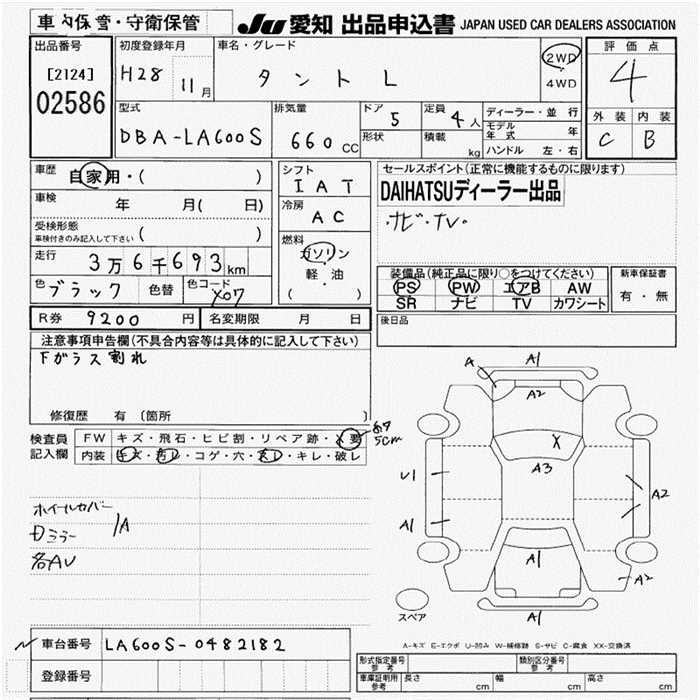 車内保管・守衛保管
JU 愛知 出品申込書 JAPAN USED CAR DEALERS ASSOCIATION
出品番号
[2124]
02586
初度登録年月
H28 11月
車名・グレード
タント L
2WD
4WD
評価点
4
外装 内装
C B
型式
DBA-LA600S
排気量
660 CC
ドア 5
形状
定員 4人
積載 kg
ディーラー・並行
モデル年式 年
ハンドル 左・右
車歴
自家用・( )
車検 年 月( 日)
受検形態
車検付きのみ記入して下さい ( )
走行
3万6千693km
色 ブラック 色替 色コード X07
シフト
IAT
冷房
AC
燃料
ガソリン
軽・油
( )
セールスポイント(正常に機能するものに限ります)
DAIHATSUディーラー出品
・ナビ・TV・
装備品(純正品に限り○をつけてください)
PS PW エアB AW
SR ナビ TV カワシート
新車保証書
有・無
後日品
R券 9200 円 名変期限 月 日
注意事項申告欄(不具合内容等は具体的に記入して下さい)
下ガラス割れ
修復歴 有 [箇所 ]
検査員記入欄
FW キズ・飛石・ヒビ割・リペア跡・X要
5cm
内装 キズ・汚レ・コゲ・穴・スレ・キレ・破レ
ホイールカバー
ミラー 1A
各AU
A
A1
A2
X
A3
U1
A1
A2
A1
A2
A1
スペア
A-キズ E-エクボ U-凹み W-補修跡 S-サビ C-腐食 XX-交換済
車台番号 LA600S-0482182
登録番号
形式指定番号 参考
類別区分番号 参考
車庫証明用 参考 長さ cm 幅 cm 高さ cm